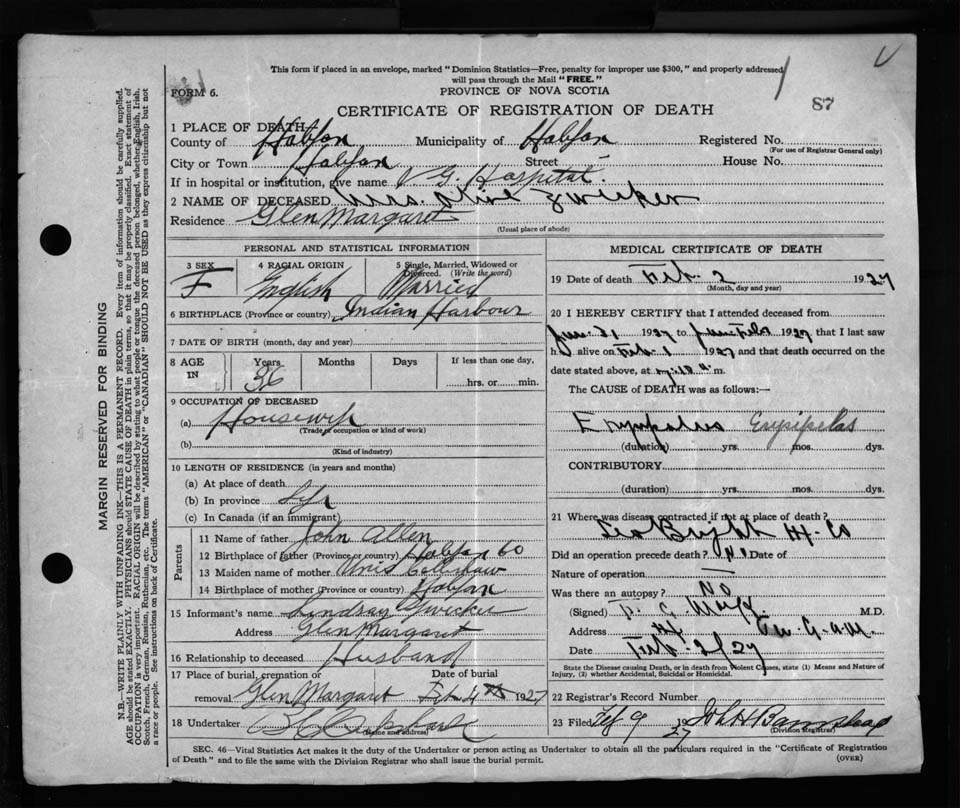 This form if placed in an envelope, marked "Dominion Statistics—Free, penalty for improper use $300," and properly addressed
will pass through the Mail "FREE."
FORM 6.
PROVINCE OF NOVA SCOTIA
87
CERTIFICATE OF REGISTRATION OF DEATH
1 PLACE OF DEATH
County of Halifax Municipality of Halifax Registered No.
(For use of Registrar General only)
City or Town Halifax Street House No.
If in hospital or institution, give name V. G. Hospital.
2 NAME OF DECEASED Mrs. Zwicker
Residence Glen Margaret
(Usual place of abode)
PERSONAL AND STATISTICAL INFORMATION
3 SEX 4 RACIAL ORIGIN 5 Single, Married, Widowed or
Divorced. (Write the word)
F English Married
6 BIRTHPLACE (Province or country) Indian Harbour
7 DATE OF BIRTH (month, day and year)
8 AGE IN Years Months Days If less than one day,
36 hrs. or min.
9 OCCUPATION OF DECEASED
(a) Housewife
(Trade, occupation or kind of work)
(b)
(Kind of industry)
10 LENGTH OF RESIDENCE (in years and months)
(a) At place of death
(b) In province Life
(c) In Canada (if an immigrant)
Parents
11 Name of father John Allen
12 Birthplace of father (Province or country) Halifax Co
13 Maiden name of mother
14 Birthplace of mother (Province or country) Halifax
15 Informant's name Lindsay Zwicker
Address Glen Margaret
16 Relationship to deceased Husband
17 Place of burial, cremation or Date of burial
removal Glen Margaret Feb 4th 1927
18 Undertaker
(Name and address)
MEDICAL CERTIFICATE OF DEATH
19 Date of death Feb. 2 1927
(Month, day and year)
20 I HEREBY CERTIFY that I attended deceased from
Jan. 31 1927 to Feb 1927, that I last saw
h alive on Feb. 1 1927 and that death occurred on
date stated above, at m.
The CAUSE of DEATH was as follows:—
Erysipelas Erysipelas
(duration) yrs. mos. dys.
CONTRIBUTORY
(duration) yrs. mos. dys.
21 Where was disease contracted if not at place of death?
Bright Hx. Co
Did an operation precede death? No Date of
Nature of operation —
Was there an autopsy? No
(Signed) M.D.
Address
Date Feb. 2/27
State the Disease causing Death, or in death from Violent Causes, state (1) Means and Nature of
Injury, (2) whether Accidental, Suicidal or Homicidal.
22 Registrar's Record Number
23 Filed Feb 9 1927 John H Barnstead
(Division Registrar)
SEC. 46—Vital Statistics Act makes it the duty of the Undertaker or person acting as Undertaker to obtain all the particulars required in the "Certificate of Registration
of Death" and to file the same with the Division Registrar who shall issue the burial permit.
(OVER)
MARGIN RESERVED FOR BINDING
N.B.—WRITE PLAINLY, WITH UNFADING INK—THIS IS A PERMANENT RECORD. Every item of information should be carefully supplied.
AGE should be stated EXACTLY. PHYSICIANS should STATE CAUSE OF DEATH in plain terms, so that it may be properly classified. Exact statement of
OCCUPATION is very important. RACIAL ORIGIN will be described by stating to what people or tongue the deceased person belonged, whether English, Irish,
Scotch, French, German, Russian, Ruthenian, etc. The terms "AMERICAN" or "CANADIAN" SHOULD NOT BE USED as they express citizenship but not
a race or people. See instructions on back of Certificate.